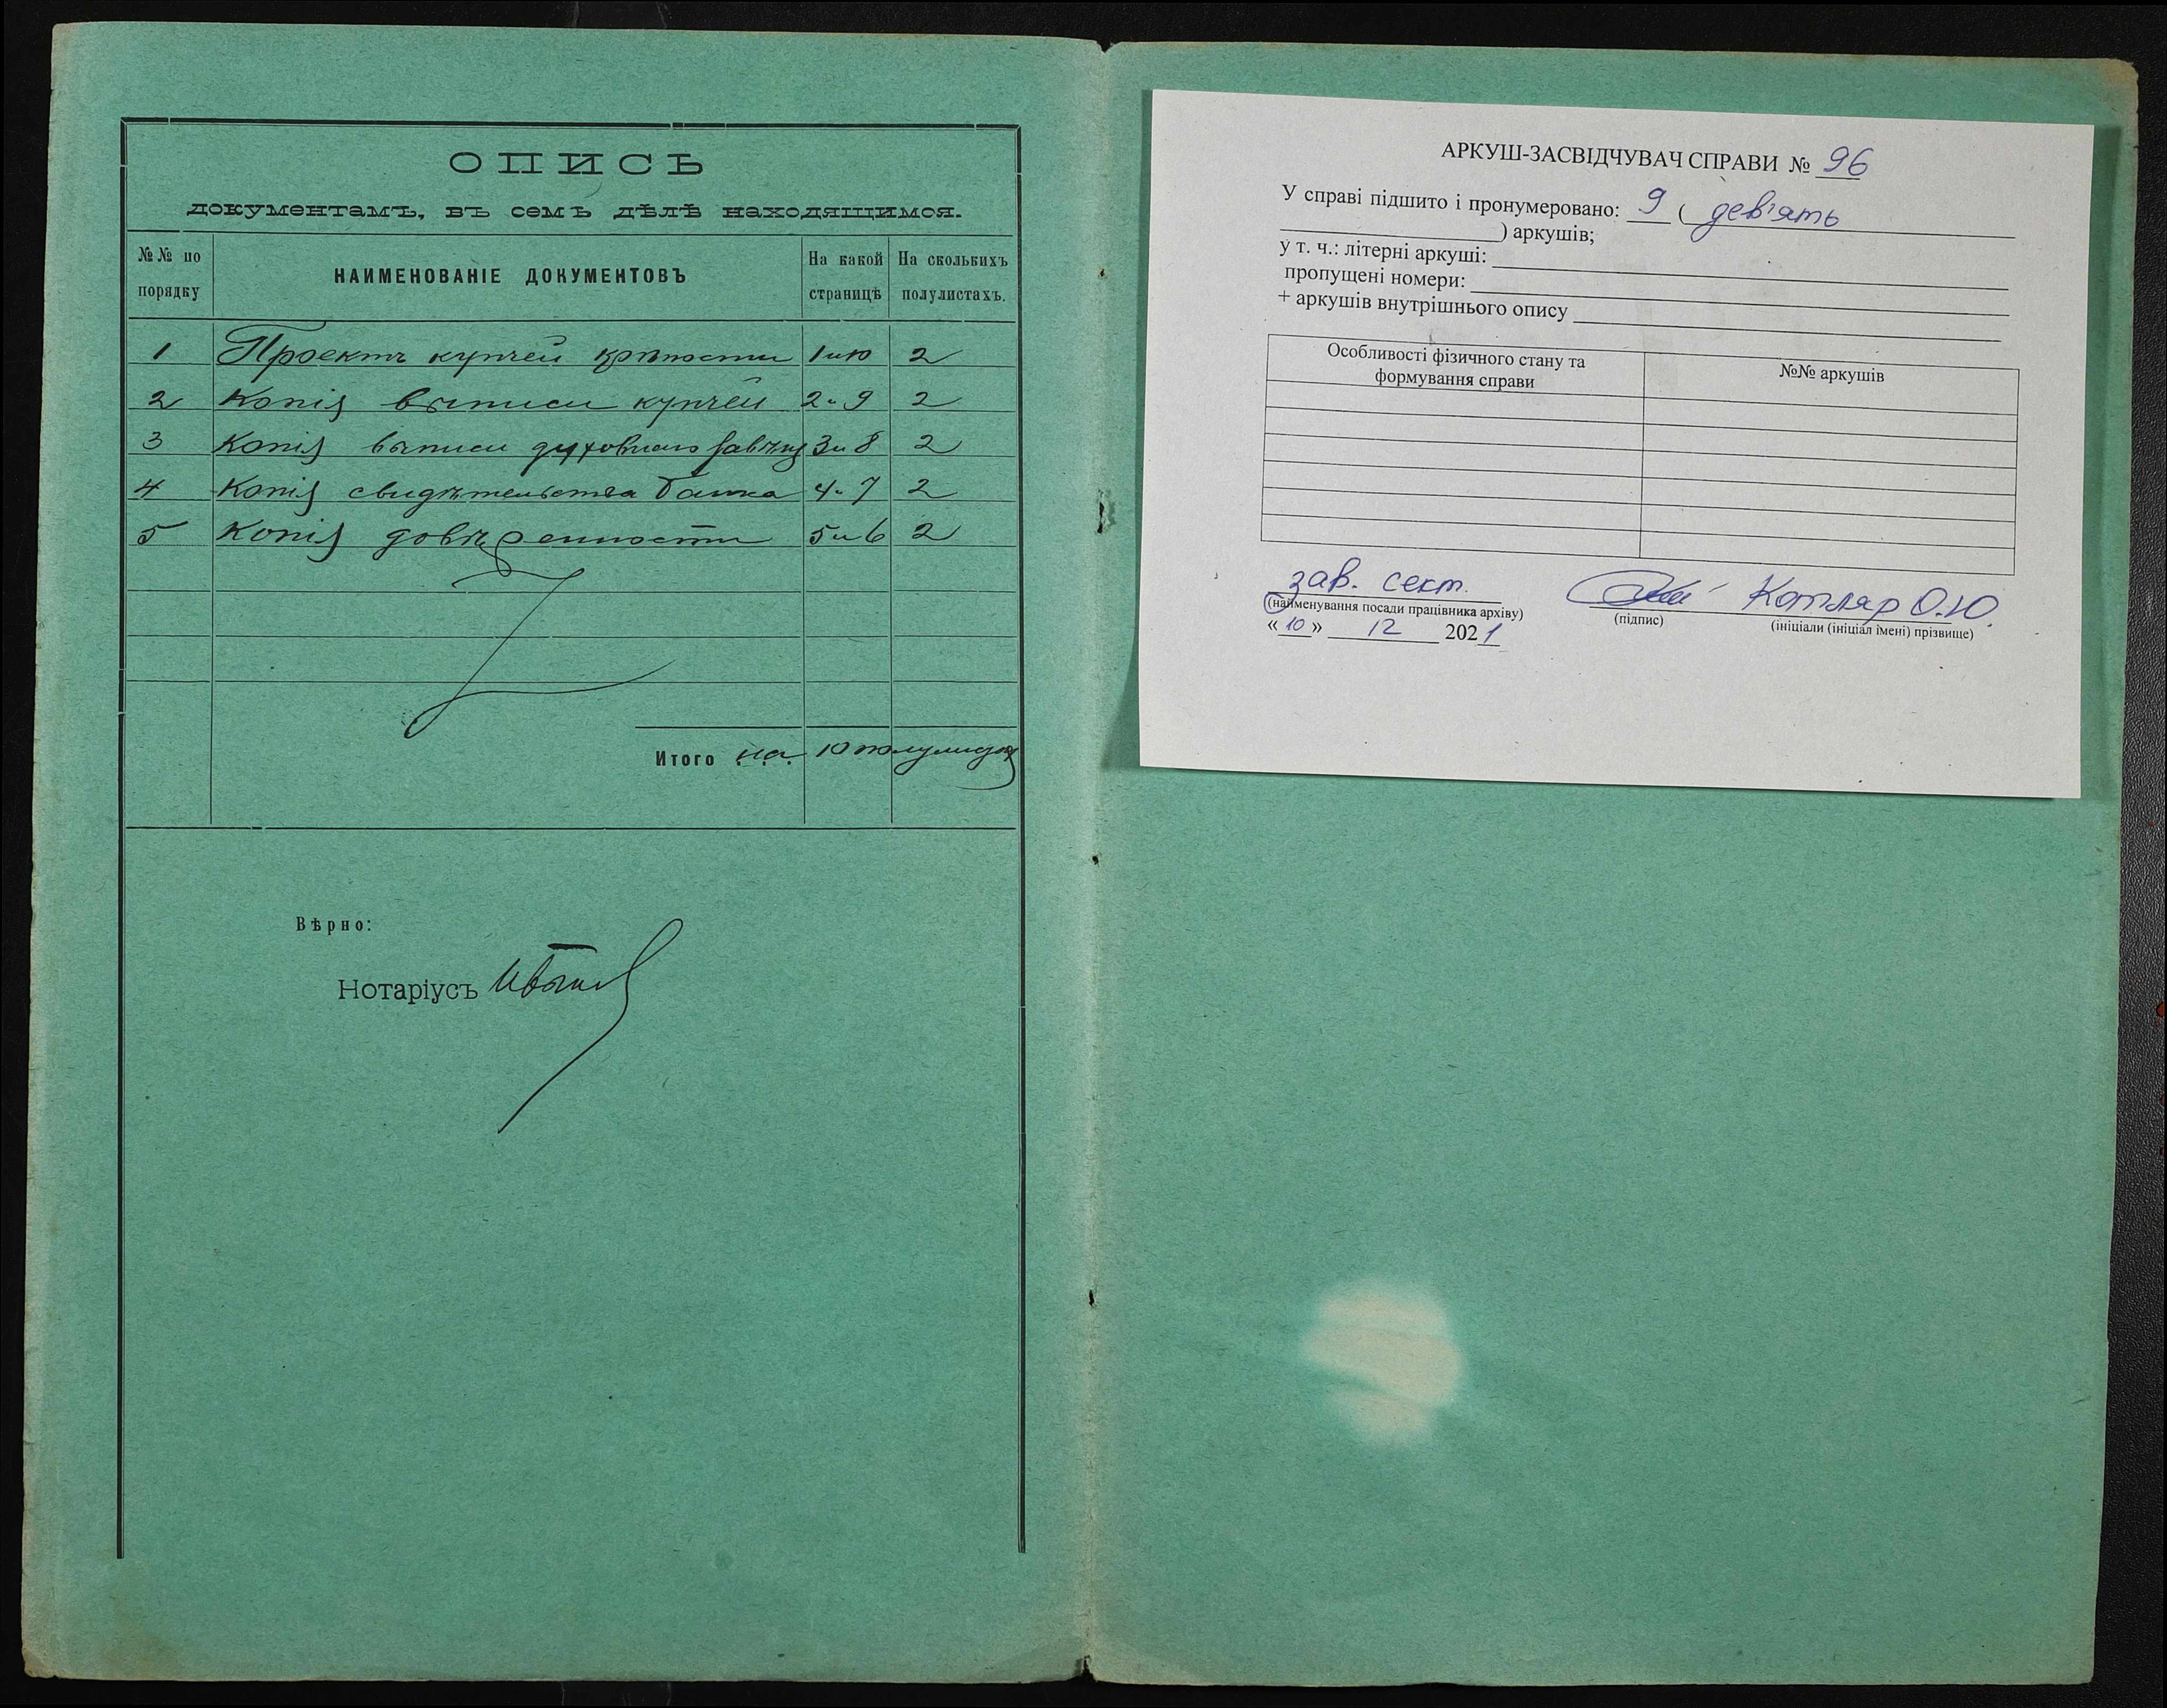 ОПИСЬ
документамъ, въ семъ дѣлѣ находящимся.
№№ по порядку
НАИМЕНОВАНІЕ ДОКУМЕНТОВЪ
На какой страницѣ
На сколькихъ полулистахъ.
1 Проектъ купчей крѣпости 1 и 10 2
2 Копія выписи купчей 2 и 9 2
3 Копія выписи духовнаго завѣщ 3 и 8 2
4 Копія свидѣтельства Банка 4 и 7 2
5 Копія довѣренности 5 и 6 2
Итого на 10 полулистах
Вѣрно:
Нотаріусъ
АРКУШ-ЗАСВІДЧУВАЧ СПРАВИ № 96
У справі підшито і пронумеровано: 9 ( дев'ять
) аркушів;
у т. ч.: літерні аркуші:
пропущені номери:
+ аркушів внутрішнього опису
Особливості фізичного стану та
формування справи
№№ аркушів
зав. сект. Котляр О.Ю.
(найменування посади працівника архіву) (підпис) (ініціали (ініціал імені) прізвище)
« 10 » 12 2021